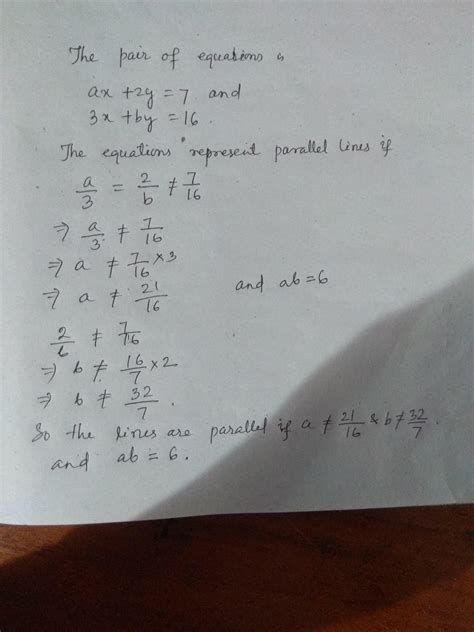 The pair of equations is
ax + 2y = 7 and
3x + by = 16.
The equations represent parallel lines if
a/3 = 2/b ≠ 7/16
⇒ a/3 ≠ 7/16
⇒ a ≠ 7/16 × 3
⇒ a ≠ 21/16 and ab = 6
2/b ≠ 7/16
⇒ b ≠ 16/7 × 2
⇒ b ≠ 32/7.
So the lines are parallel if a ≠ 21/16 & b ≠ 32/7.
and ab = 6.